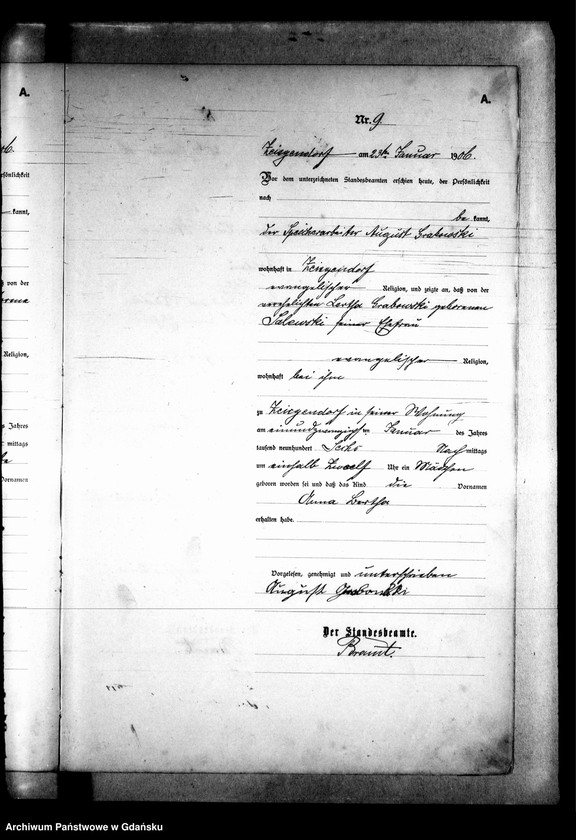 A.
A.
Nr. 9.
Kriegendorf am 23ten Januar 1906.
Vor dem unterzeichneten Standesbeamten erschien heute, der Persönlichkeit
nach
be kannt,
der Speicherarbeiter August Grabowski
wohnhaft in
evangelischer Religion, und zeigte an, daß von der
verehelichten Bertha Grabowski geborenen
Salewski seiner Ehefrau
evangelischer Religion,
wohnhaft bei ihm
zu in seiner Wohnung
am einundzwanzigsten Januar des Jahres
tausend neunhundert sechs Nach mittags
um einhalb zwoelf Uhr ein Mädchen
geboren worden sei und daß das Kind die Vornamen
Anna Bertha
erhalten habe.
Vorgelesen, genehmigt und unterschrieben
August Grabowski
Der Standesbeamte.
06.
kannt,
von der
Religion,
s Jahres
mittags
Vornamen
Archiwum Państwowe w Gdańsku